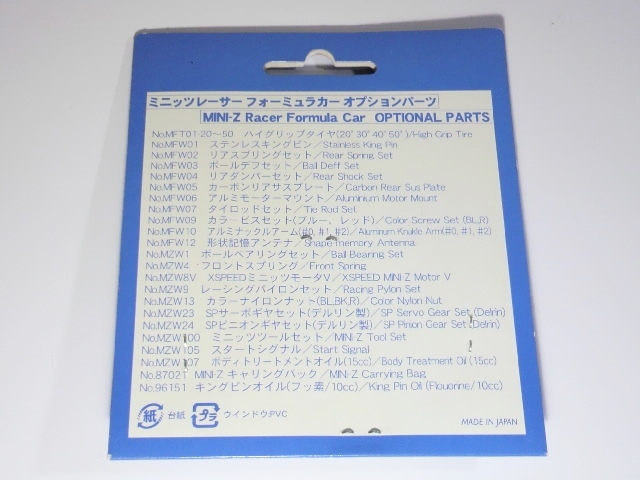 ミニッツレーサー フォーミュラカー オプションパーツ
MINI-Z Racer Formula Car OPTIONAL PARTS
No.MFT01-20～50 ハイグリップタイヤ(20°30°40°50°)/High Grip Tire
No.MFW01 ステンレスキングピン/Stainless King Pin
No.MFW02 リアスプリングセット/Rear Spring Set
No.MFW03 ボールデフセット/Ball Deff Set
No.MFW04 リアダンパーセット/Rear Shock Set
No.MFW05 カーボンリアサスプレート/Carbon Rear Sus Plate
No.MFW06 アルミモーターマウント/Aluminium Motor Mount
No.MFW07 タイロッドセット/Tie Rod Set
No.MFW09 カラービスセット(ブルー、レッド)/Color Screw Set (BL,R)
No.MFW10 アルミナックルアーム(#0, #1, #2)/Aluminum Knukle Arm(#0, #1, #2)
No.MFW12 形状記憶アンテナ/Shape memory Antenna
No.MZW1 ボールベアリングセット/Ball Bearing Set
No.MZW4 フロントスプリング/Front Spring
No.MZW8V XSPEEDミニッツモータV/XSPEED MINI-Z Motor V
No.MZW9 レーシングパイロンセット/Racing Pylon Set
No.MZW13 カラーナイロンナット(BL,BK,R)/Color Nylon Nut
No.MZW23 SPサーボギヤセット(デルリン製)/SP Servo Gear Set (Delrin)
No.MZW24 SPピニオンギヤセット(デルリン製)/SP Pinion Gear Set (Delrin)
No.MZW100 ミニッツツールセット/MINI-Z Tool Set
No.MZW105 スタートシグナル/Start Signal
No.MZW107 ボディトリートメントオイル(15cc)/Body Treatment Oil (15cc)
No.87021 MINI-Z キャリングバック/MINI-Z Carrying Bag
No.96151 キングピンオイル(フッ素/10cc)/King Pin Oil (Flouorine/10cc)
紙 台紙 プラ ウインドウPVC
MADE IN JAPAN